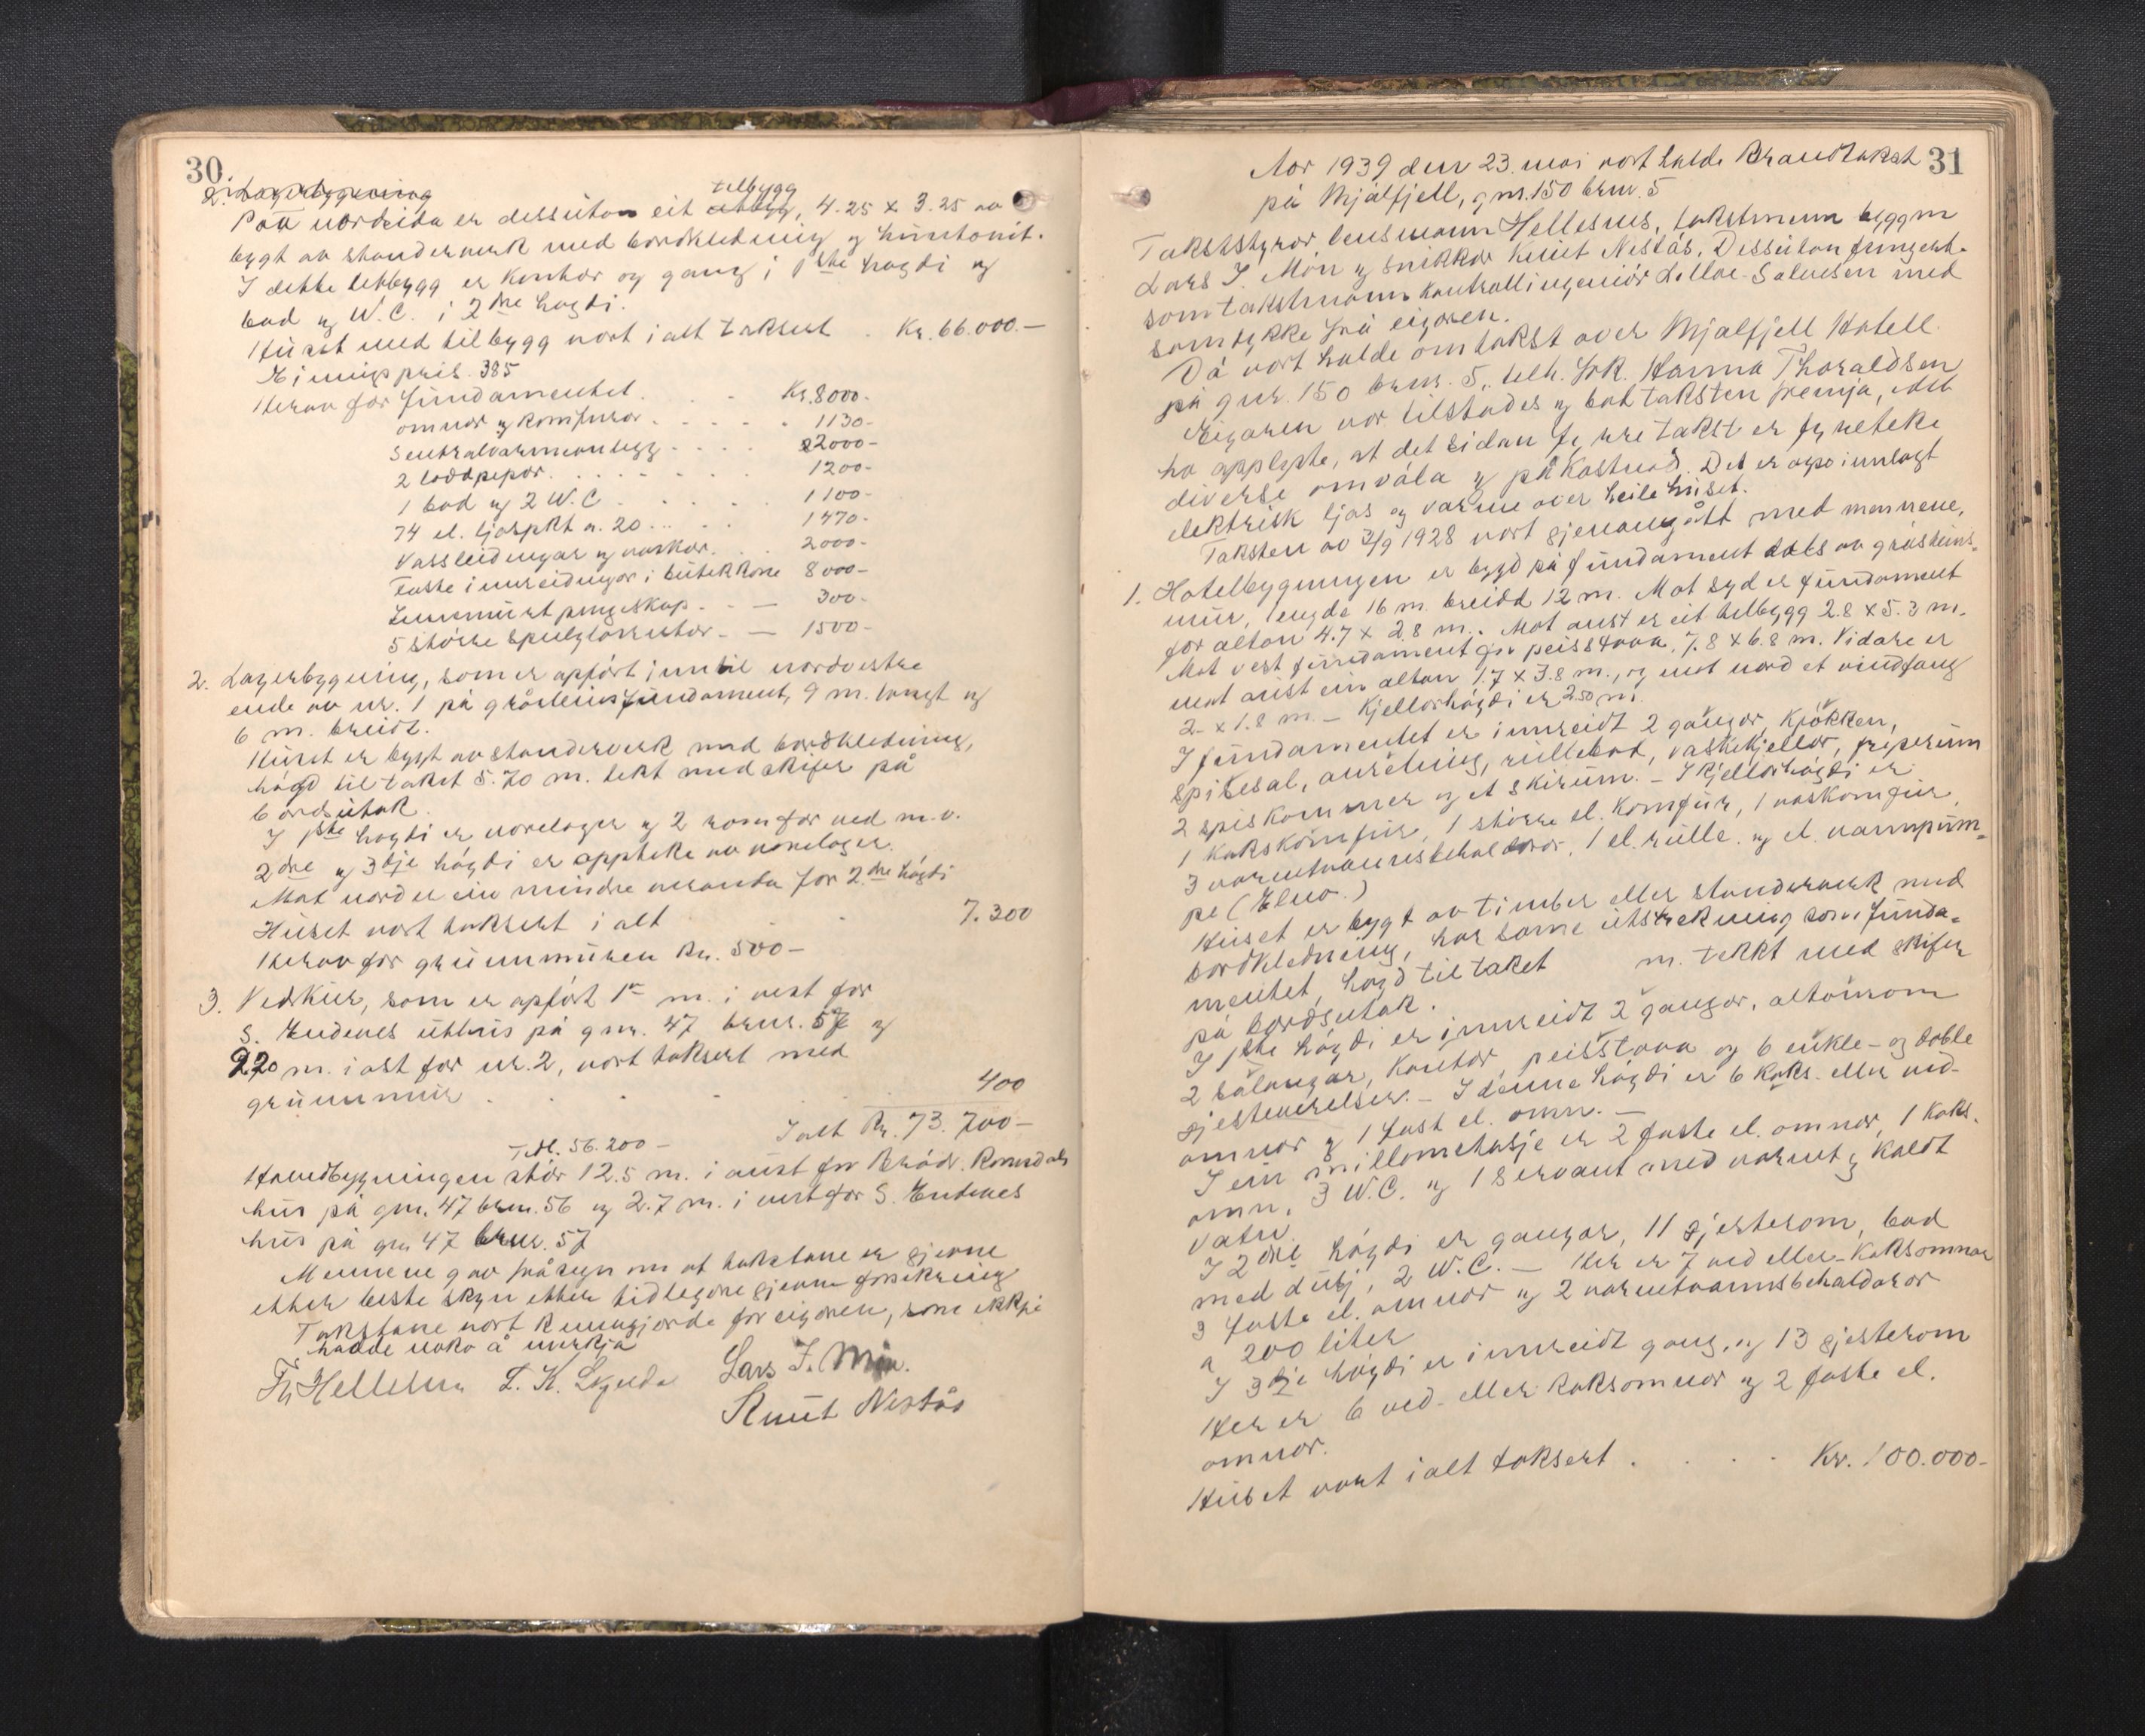 30
2. Lagerbygning
tilbygg
Paa nordsida er dessutan eit utbygg, 4.25 x 3.25 m
bygt av standerverk med bordkledning og huntonit.
I dette tilbygg er kontor og gang i 1ste høgdi og
bad og W.C. i 2dre høgdi.
Huset med tilbygg vart i alt taksert . Kr. 66.000.—
Einingspris 385
Herav for fundamentet . . . Kr. 8000-
omnar og komfyrar . . . . . 1130-
Sentralvarmeanlegg . . . . 2000-
2 loddpipor . . . . . . 1200-
1 bad og 2 W.C. . . . . 1100-
74 el. ljospkt a. 20 . . . . 1470-
Vassleidningar og vaskar. . . 2000-
Faste innreidningar i butikkane 8000-
Innmurt pengeskap. - — 300-
5 større speglglasrutor - — 1500-
2. Lagerbygning, som er apført inn til nordvestre
ende av nr. 1 på gråsteinsfundament, 9 m. langt og
6 m. breidt.
Huset er bygt av standerverk med bordkledning,
høgd til taket 5.70 m. tekt med skifer på
bordsutak.
I 1ste høgdi er varelager og 2 rom for ved m.v.
2dre og 3dje høgdi er
Mot nord er ein mindre veranda for 2dre høgdi
Huset vart taksert i alt . . 7.300
Herav for grunnmuren Kr. 500-
3. Vedskur, som er apført 1 m. i vest for
S. Endenes uthus på gnr. 47 brnr. 57 og
220 m. i ast for nr. 2, vart taksert med
grunnmur . . . . 400
Ialt Kr. 73.700-
Tdl. 56.200-
Hovedbygningen står 12.5 m. i aust for Brødr. Ronsdals
hus på gnr. 47 brnr. 56 og 2.7 m. i vest for S. Endenes
hus på gnr 47 brnr. 57
Mennene gav fråsegn om at takstane er gjevne
etter beste skyn etter tidlegare gjevne forsikring
Takstane vart kunngjorde for eigaren, som ikkje
hadde noko å merkja
Fr. Hellesnes L. K. Skjelde Lars J. Møn.
Knut Nestås
31
Aar 1939 den 23. mai vart halde Brandtakst
på Mjølfjell, gnr. 150 brnr. 5
Takststyrar lensmann Hellesnes, takstmenn byggm
Lars J. Møn og snikkar Knut Nestås. Dessutan fungerte
som takstmann kontrollingeniør Salvesen med
samtykke frå eigaren.
Då vart halde omtakst over Mjølfjell Hotell
på gnr. 150 brnr. 5, tilh. frk. Hanna Thoraldsen
Eigaren var tilstades og bad taksten fremja,
ho opplyste, at det sidan fyrre takst er fyreteke
diverse omvøla og påkostnad. Det er også innlagt
elektrisk ljos og varme over heile huset.
Taksten av 3/9 1928 vart gjenomgått med mennene.
1. Hotelbygningen er bygd på fundament dels av gråsteins-
mur, lengde 16 m. breidd 12 m. Mot syd er fundament
for altan 4.7 x 2.8 m. Mot aust er eit tilbygg 2.8 x 5.3 m.
Mot vest fundament for peisstova, 7.8 x 6.8 m. Vidare er
mot aust ein altan 1.7 x 3.8 m., og mot nord et vindfang
2 x 1.8 m. — Kjellarhøgdi er 2.50 m.
I fundamentet er innreidt 2 gangar, kjøkken,
spisesal, anretning, rullebod, vaskekjeller, fryserum
2 spiskammer og et skirum. — I kjellarhøgdi er
1 kokskomfyr, 1 større el. komfyr, 1 vaskomfyr,
3 varmtvannsbehaldarar, 1 el. rulle og el. vannpum-
pe (Elmo.)
Huset er bygt av timber eller standerverk med
bordkledning, har same utstrekning som funda-
mentet, høgd til taket m. tekkt med skifer
på bordsutak.
I 1ste høgdi er innreidt 2 gangar,
2 salongar, kontor, peisstova og 6 enkle- og doble
gjesteverelser. — I denne høgdi er 6 koks- eller ved-
omnar og 1 fast el. omn. —
I ein millometasje er 2 faste el. omnar, 1 koks-
omn, 3 W.C. og 1 servant med varmt og kaldt
vatn.
I 2dre høgdi er gangar, 11 gjesterom, bad
med dusj, 2 W.C. — Her er 7 ved eller- koksomnar
3 faste el. omnar og 2 varmtvannsbehaldarar
a 200 liter
I 3dje høgdi er innreidt gang, og 13 gjesterom
Her er 6 ved- eller koksomnar og 2 faste el.
omnar.
Huset vart i alt taksert . . . . Kr. 100.000-